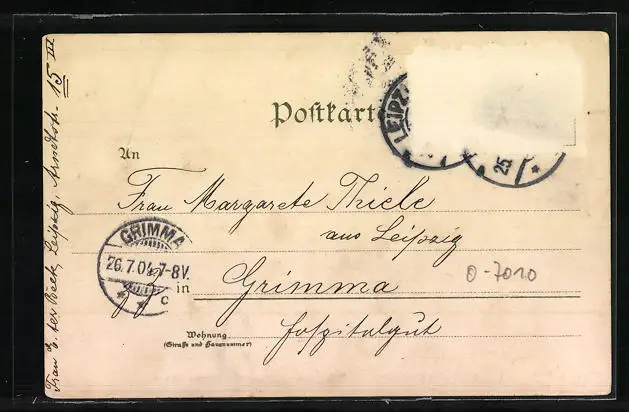 Postkarte
LEIPZ
25
An
Frau Margarete Thiele
aus Leipzig
GRIMMA
26.7.01 7-8V.
c
z. Z.
in Grimma
O-7010
Hospitalgut
Wohnung
(Straße und Hausnummer)
Frau E. ter Beek, Leipzig, Arndtstr. 15 III